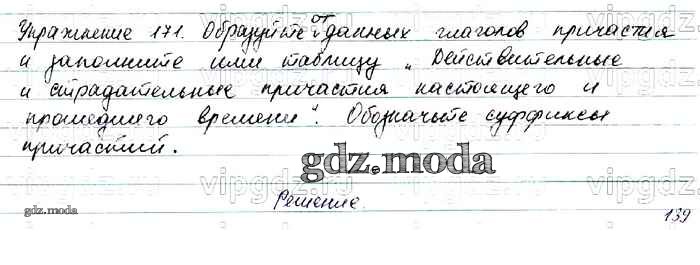 Упражнение 171. Образуйте от данных глаголов причастия
и заполните ими таблицу „Действительные
и страдательные причастия настоящего и
прошедшего времени". Обозначьте суффиксы
причастий.
gdz.moda
Решение.
gdz.moda
139